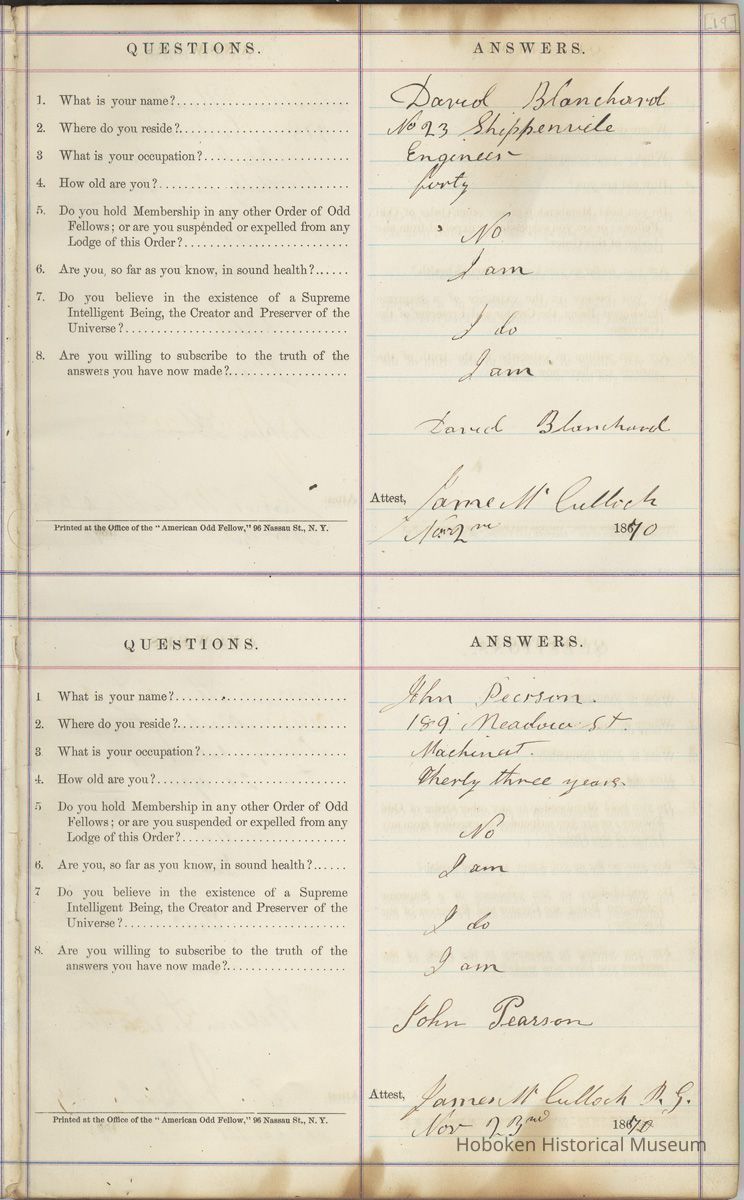 [19]
QUESTIONS. ANSWERS.
1. What is your name?........................... David Blanchard
2. Where do you reside?........................... No 23 Shippenvile
3 What is your occupation?....................... Engineer
4. How old are you?.............................. forty
5. Do you hold Membership in any other Order of Odd
Fellows; or are you suspended or expelled from any
Lodge of this Order?.......................... No
6. Are you, so far as you know, in sound health?...... I am
7. Do you believe in the existence of a Supreme
Intelligent Being, the Creator and Preserver of the
Universe?................................... I do
8. Are you willing to subscribe to the truth of the
answers you have now made?................... I am
David Blanchard
Attest, James Mc Culloch
Printed at the Office of the "American Odd Fellow," 96 Nassau St., N. Y.
Nov 2nd 1870
QUESTIONS. ANSWERS.
1 What is your name?........................... John Peirson.
2. Where do you reside?........................... 189 Meadow St.
3 What is your occupation?....................... Machinest.
4. How old are you?.............................. Therty three years.
5 Do you hold Membership in any other Order of Odd
Fellows; or are you suspended or expelled from any
Lodge of this Order?.......................... No
6. Are you, so far as you know, in sound health?...... I am
7 Do you believe in the existence of a Supreme
Intelligent Being, the Creator and Preserver of the
Universe?................................... I do
8. Are you willing to subscribe to the truth of the
answers you have now made?................... I am
John Pearson
Attest, James Mc Culloch R. G.
Printed at the Office of the "American Odd Fellow," 96 Nassau St., N. Y.
Nov 23nd 1870
Hoboken Historical Museum